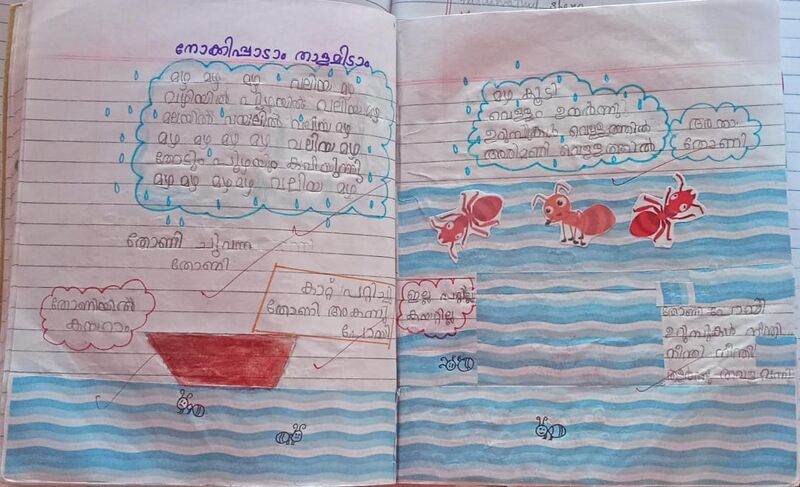 നോക്കിപ്പാടാം താളമിടാം
മഴ മഴ മഴ വലിയ മഴ
വഴിയിൽ പുഴയിൽ വലിയ മഴ
മലയിൽ വയലിൽ വലിയ മഴ
മഴ മഴ മഴ മഴ വലിയ മഴ
തോടും പുഴയും കവിയുന്നു
മഴ മഴ മഴ മഴ വലിയ മഴ
തോണി ചുവന്ന
തോണി
തോണിയിൽ
കയറാം
കാറ്റ് പറ്റിച്ചു
തോണി അകന്നു
പോയി
മഴ കൂടി
വെള്ളം ഉയർന്നു
ഉറുമ്പുകൾ വെള്ളത്തിൽ
അരിമണി വെള്ളത്തിൽ
അതാ
തോണി
ഇല്ല പറ്റില്ല
കയറില്ല
തോണി പോയി
ഉറുമ്പുകൾ നീന്തി
നീന്തി നീന്തി
വന്നു